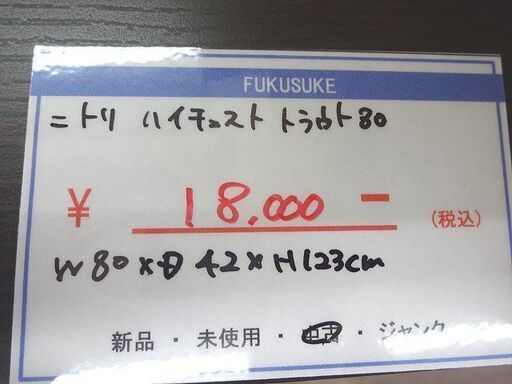 FUKUSUKE
ニトリ ハイチェスト トラウト80
¥ 18,000- (税込)
W80×D42×H123cm
新品・未使用・中古・ジャンク